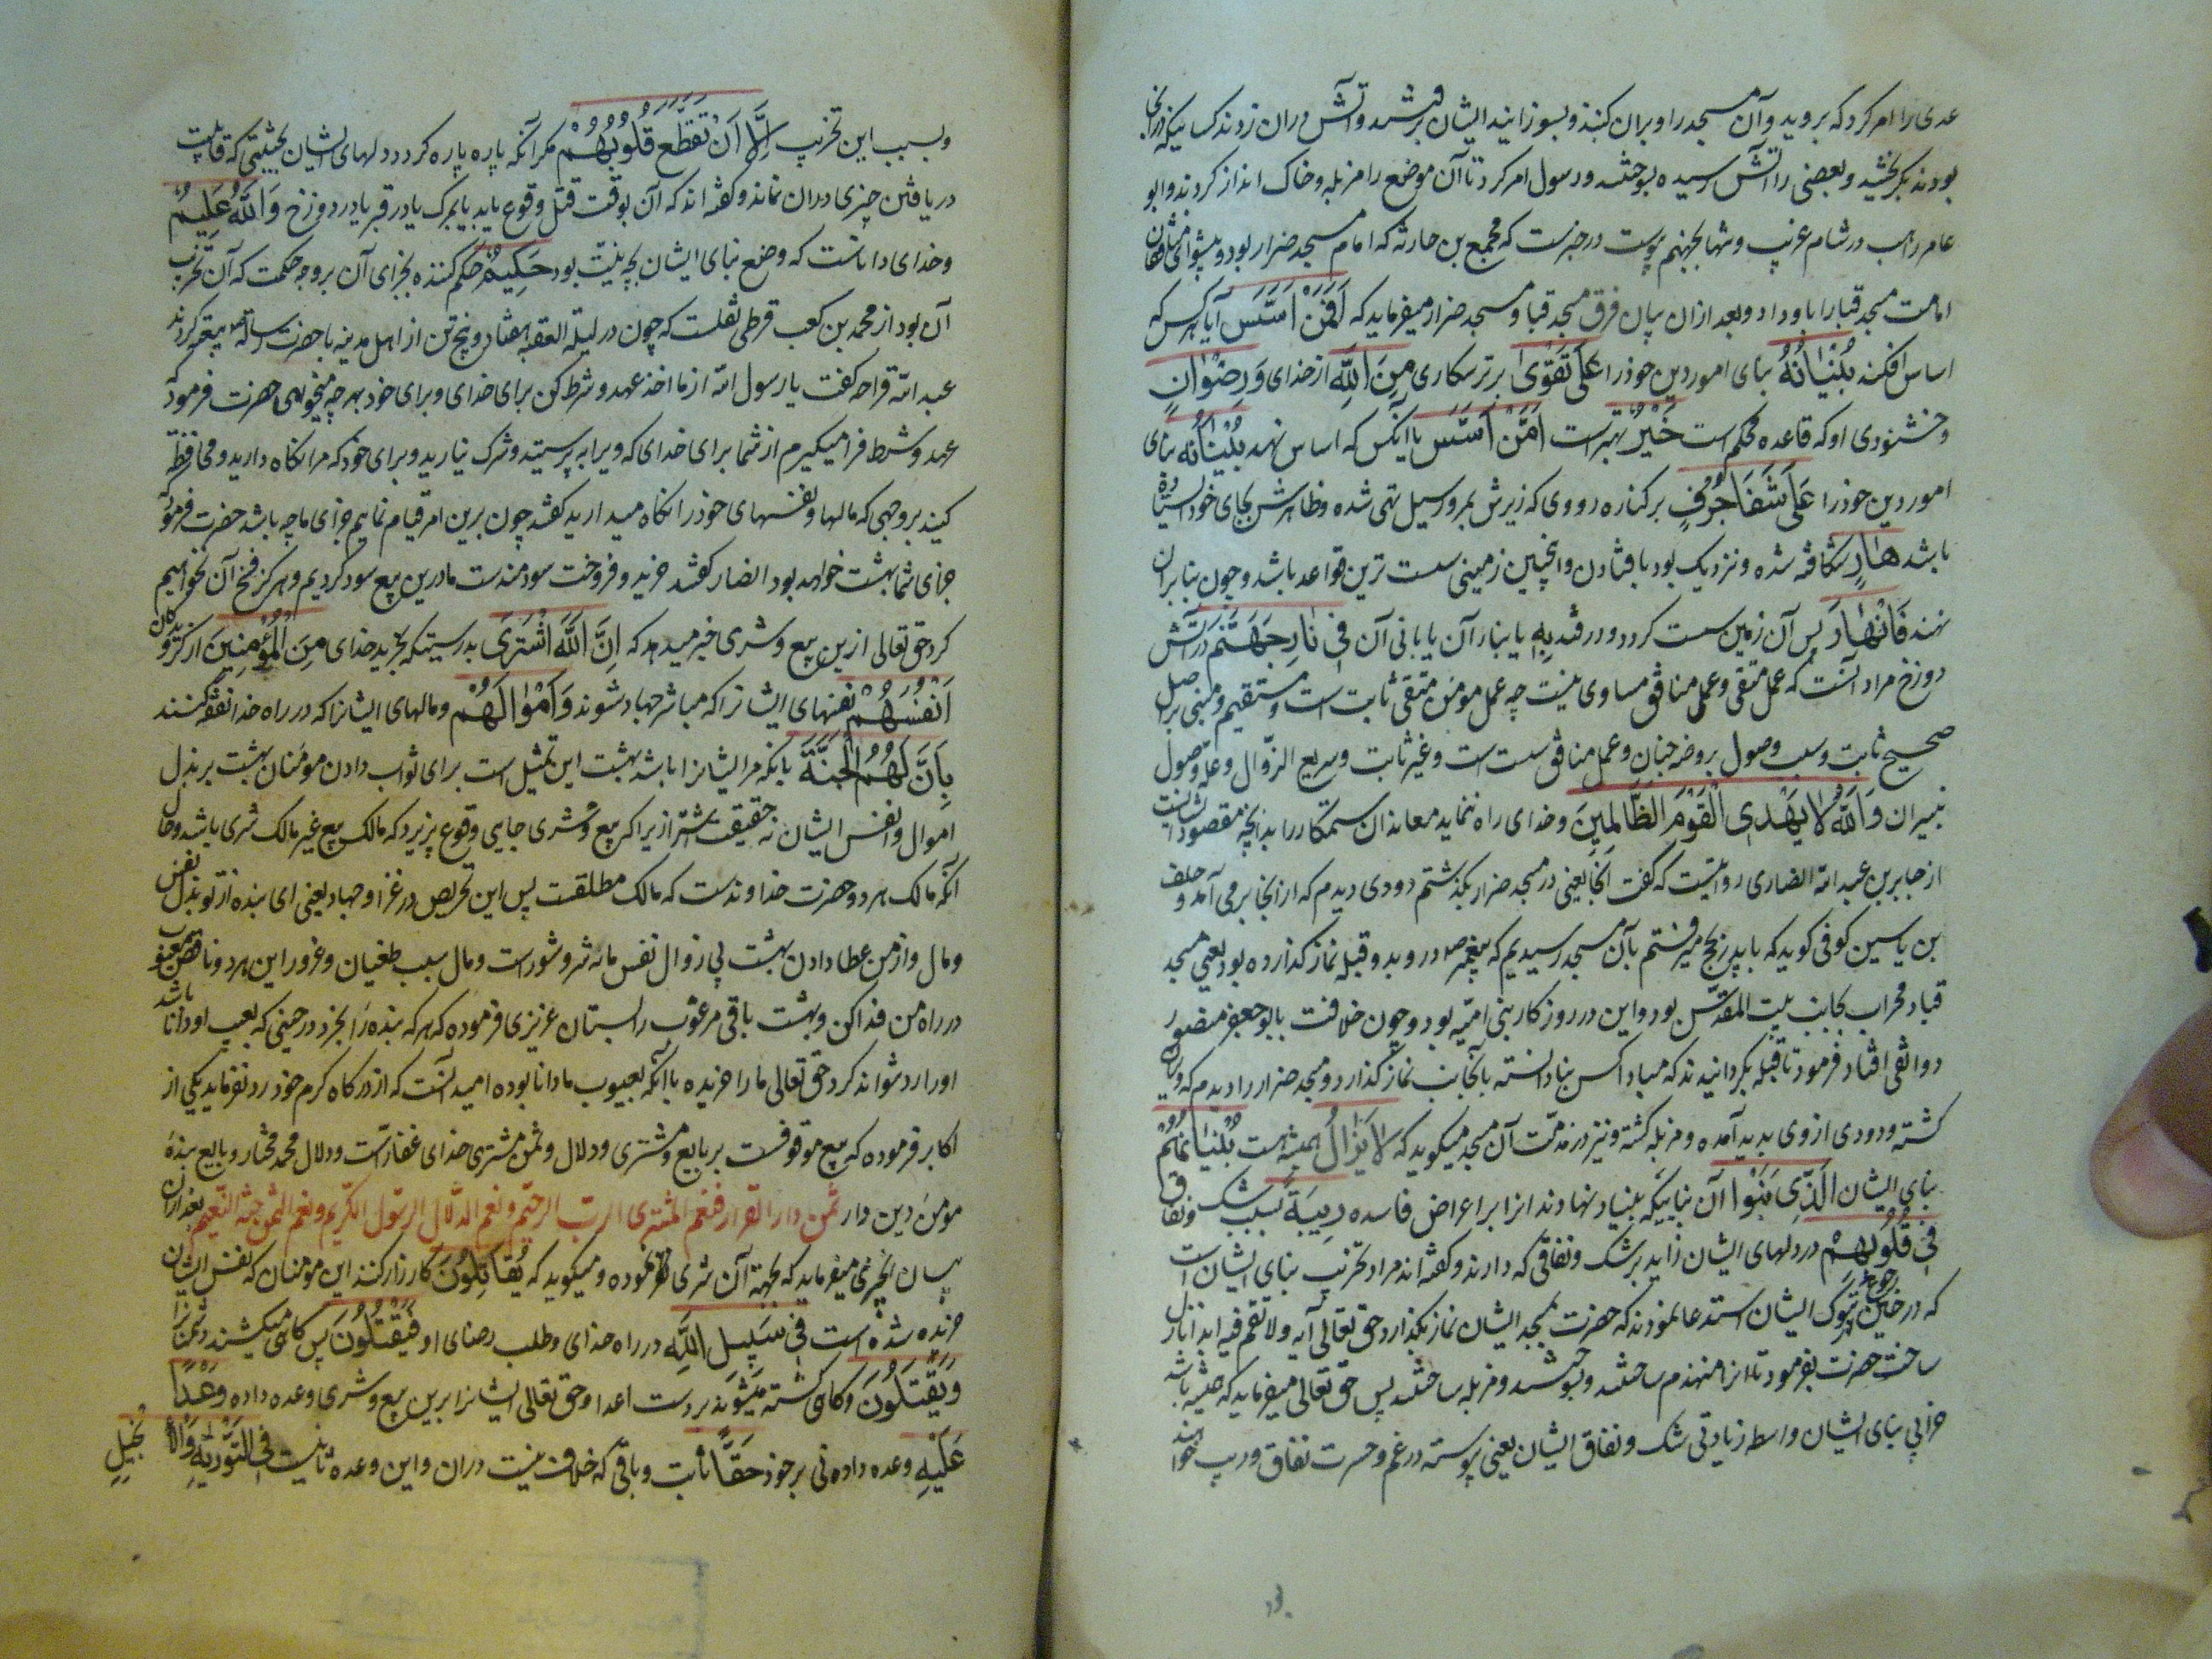 عدی را امر کرد که بروید و آن مسجد را ویران کنید و بسوزانید ایشان برفتند و آتش دران زدند کسانیکه درانجا
بودند بگریختند و بعضی را آتش رسیده بسوختند و رسول امر کرد تا آن موضع را مزبله و خاک انداز کردند و ابو
عامر راهب در شام غریب و تنها بجهنم پیوست در خبرست که مجمع بن حارثه که امام مسجد ضرار بود و پیشوای
امامت مسجد قبا را باو داد و بعد ازان بیان فرق مسجد قبا و مسجد ضرار میفرماید که اَفَمَنْ اَسَّسَ آیا هرکس که
اساس افکند بُنْیَانَهُ بنای امور دین خود را عَلَی تَقْوٰی بر ترسکاری مِنَ اللَّهِ از خدای وَرِضْوَانٍ
و خشنودی او که قاعده محکم است خَیْرٌ بهتر است اَمْ مَنْ اَسَّسَ یا آنکس که اساس نهد بُنْیَانَهُ بنای
امور دین خود را عَلَی شَفَا جُرُفٍ بر کناره رودی که زیرش بمرور سیل تهی شده و ظاهرش بجای خود
باشد هَارٍ شکافه شده و نزدیک بود بافتادن و اینچنین زمینی سست ترین قواعد باشد و چون بنا بران
نهند فَانْهَارَ پس آن زمین سست کردد و درفتد بِهِ یا بنا را آن یا بانی آن فِی نَارِ جَهَنَّمَ در آتش
دوزخ مراد آنست که عمل متقی و عمل منافق مساوی نیست چه عمل مومن متقی ثابت است و مستقیم و مبنی بر اصل
صحیح ثابت و سبب وصول بروضه جنان و عمل منافق سست است و غیر ثابت و سریع الزّوال و علّه وصول
نیران وَاللَّهُ لَا یَهْدِی الْقَوْمَ الظَّالِمِینَ و خدای راه ننماید معاندان ستمکار را بدانچه مقصود ایشانست
از جابر بن عبد الله انصاری روایتست که گفت آنجا یعنی در مسجد ضرار بگذشتم دودی دیدم که از انجا برمی آمد و خلف
بن یاسین کوفی کوید که با پدر بحج میرفتم بآن مسجد رسیدیم که پیغمبر ص در وبدو قبله نماز گذارده بود یعنی مسجد
قبا و محراب بجانب بیت المقدس بود و این در روزکار بنی امیّه بود و چون خلافت بابو جعفر منصور
دوانقی افتاد فرمود تا قبله بگردانیدند که مبادا کس بنادانسته بآنجانب نماز گذارد و مسجد ضرار را دیدم که ویران
کشته و دودی از وی بدید آمده و مزبله کشته و نیز در مذمّت آن مسجد میکوید که لَا یَزَالُ همیشه است بُنْیَانُهُمُ
بنای ایشان الَّذِی بَنَوْا آن بنایی که بنیاد نهادند انرا بر اعراض فاسده رِیبَةً بسبب شک و نفاق
فِی قُلُوبِهِمْ در دلهای ایشان زاید بر شک و نفاقی که دارند و کفته اند مراد تخریب بنای ایشان است
که در حین رجوع تبوک ایشان استدعا نمودند که حضرت بمسجد ایشان نماز بگذارد حق تعالی آیه ولا تقم فیه ابدا نازل
ساخت حضرت بفرمود تا انرا منهدم ساختند و بسوختند و مزبله ساختند پس حق تعالی میفرماید که همیشه باشد
خرابی بنای ایشان واسطه زیادتی شک و نفاق ایشان یعنی پیوسته در غم و حسرت نفاق و ریب خواهند
و بسبب این تخریب اِلَّا اَنْ تَقَطَّعَ قُلُوبُهُمْ مکر آنکه پاره پاره کردد دلهای ایشان بحیثیتی که قابلیت
دریافتن چیزی دران نماند و کفته اند که آن بوقت قتل وقوع یابد یا بمرک یا در قبر یا در دوزخ وَاللَّهُ عَلِیمٌ
و خدای داناست که وضع بنای ایشان بچه نیّت بود حَکِیمٌ حکم کننده بجزای آن بر وجه حکمت که آن تخریب
آن بود از محمد بن کعب قرظی نقلست که چون در لیلة العقبه هفتاد و پنج تن از اهل مدینه با حضرت رسالت بیعت کردند
عبد الله رواحه کفت یا رسول الله از ما اخذ عهد و شرط کن برای خدای و برای خود بهر چه میخواهی حضرت فرمود
عهد و شرط فرا میکیرم از شما برای خدای که ویرا بپرستید و شرک نیارید و برای خود که مرا نکاه دارید و محافظة
کنید بر وجهی که مالها و نفسهای خود را نکاه میدارید کفتند چون برین امر قیام نماییم جزای ما چه باشد حضرت فرمود
جزای شما بهشت خواهد بود انصار کفتند خرید و فروخت سودمندست ما درین بیع سود کردیم و هرکز فسخ آن نخواهیم
کرد حق تعالی ازین بیع و شری خبر میدهد که اِنَّ اللَّهَ اشْتَرَی بدرستیکه بخرید خدای مِنَ الْمُؤْمِنِینَ از کروندکان
اَنْفُسَهُمْ نفسهای ایشانرا که مباشر جهاد شوند وَاَمْوَالَهُمْ و مالهای ایشانرا که در راه خدا نفقه کنند
بِاَنَّ لَهُمُ الْجَنَّةَ بآنکه مر ایشانرا باشد بهشت این تمثیل است برای ثواب دادن مؤمنان بهشت بر بذل
اموال و انفس ایشان نه حقیقت اشترا زیرا که بیع و شری جایی وقوع پزیرد که مالک بیع غیر مالک شری باشد و حال
آنکه مالک هر دو حضرت خداوندست که مالک مطلقست پس این تحریص در غزا و جهاد یعنی ای بنده از تو بذل نفس
و مال و از من عطا دادن بهشت بی زوال نفس مایه شر و شورست و مال سبب طغیان و غرور این هر دو ناقص معیوب
در راه من فدا کن و بهشت باقی مرغوب را بستان عزیزی فرموده که هر که بنده را بخرد در حینی که بعیب او دانا باشد
اورا رد نتواند کرد حق تعالی ما را خریده با آنکه بعیوب ما دانا بوده امید آنست که از درکاه کرم خود رد نفرماید یکی از
اکابر فرموده که بیع موقوفست بر بایع و مشتری و دلال و ثمن مشتری خدای غفارست و دلال محمد مختار و بایع بنده
مؤمن دین دار ثمن دار القرار فنعم المشتری الرب الرحیم و نعم الدّلال الرسول الکریم و نعم الثمن جنّة النّعیم بعد ازان
بیان میفرماید که بجهة آن شری نموده و میکوید که یُقَاتِلُونَ کارزار کنند این مومنان که نفس ایشان
خریده شده است فِی سَبِیلِ اللَّهِ در راه خدای و طلب رضای او فَیَقْتُلُونَ پس کاهی میکشند دشمنانرا
وَیُقْتَلُونَ و کاهی کشته میشوند بر دست اعدا و حق تعالی ایشانرا برین بیع و شری وعده داده وَعْدًا
عَلَیْهِ وعده دادنی بر خود حَقًّا ثابت و باقی که خلاف نیست دران و این وعده ثابتست فِی التَّوْرٰیةِ وَالْاِ
نْجِیلِ